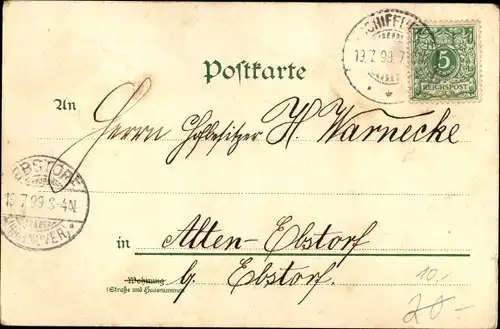 SCHIFFD
13.7.99. 7
5
REICHSPOST
Postkarte
An
Herrn Hofbesitzer H. Warnecke
EBSTORF
13.7.99. 3-4N
(HANNOVER)
in Alten-Ebstorf
Wohnung
(Straße und Hausnummer)
b/ Ebstorf.
10.-
20.-